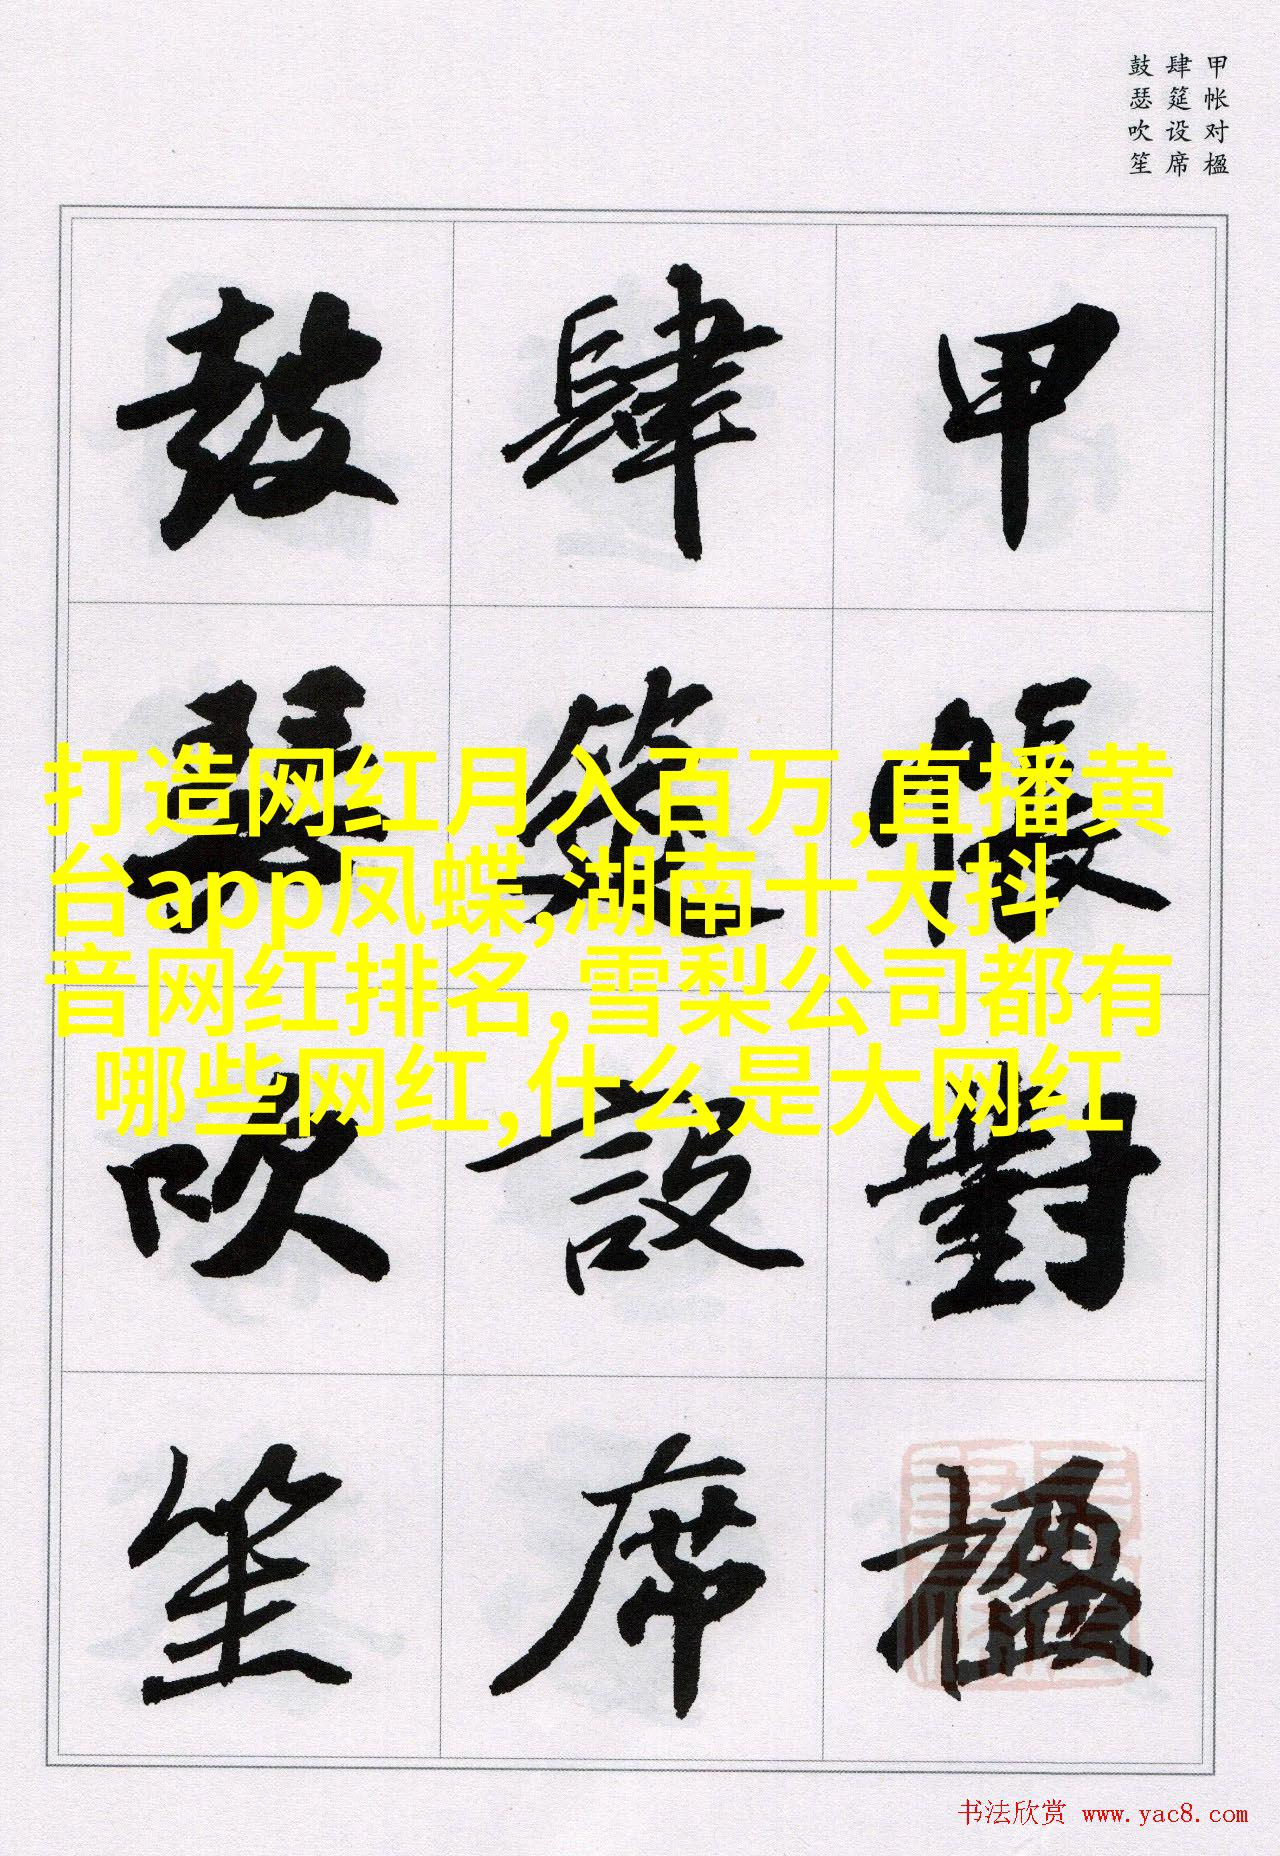 甲帐对楹
肆筵设席
鼓瑟吹笙
甲帳對楹
肆筵設席
鼓瑟吹笙
打造网红月入百万,直播黄
台app凤蝶,湖南十大抖
音网红排名,雪梨公司都有
哪些网红,什么是大网红
书法欣赏 www.yac8.com